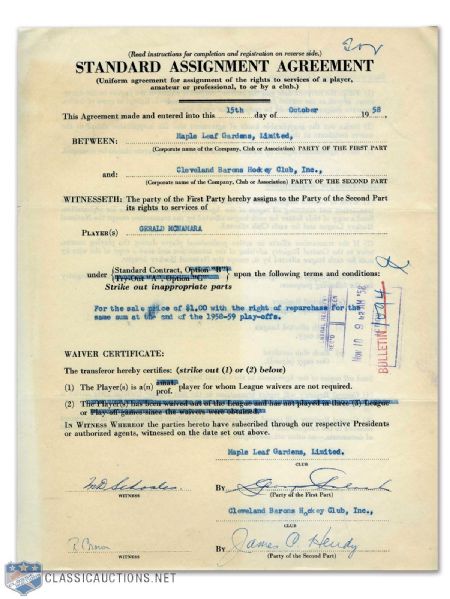 (Read instructions for completion and registration on reverse side.)
STANDARD ASSIGNMENT AGREEMENT
(Uniform agreement for assignment of the rights to services of a player,
amateur or professional, to or by a club.)
This Agreement made and entered into this 15th day of October 1958,
Maple Leaf Gardens, Limited,
BETWEEN:
(Corporate name of the Company, Club or Association) PARTY OF THE FIRST PART
Cleveland Barons Hockey Club, Inc.,
and:
(Corporate name of the Company, Club or Association) PARTY OF THE SECOND PART
WITNESSETH: The party of the First Part hereby assigns to the Party of the Second Part
its rights to services of
GERALD MCNAMARA
PLAYER(S)
(Standard Contract, Option "B")
under upon the following terms and conditions:
(Try-Out "A", Option "C")
Strike out inappropriate parts
For the sale price of $1.00 with the right of repurchase for the
same sum at the end of the 1958-59 play-offs.
NOV 10 9 AM '58
BULLETIN
WAIVER CERTIFICATE:
The transferor hereby certifies: (strike out (1) or (2) below)
(1) The Player(s) is a(n) amat. prof. player for whom League waivers are not required.
(2) The Player(s) has been waived out of the League and has not played in three (3) League
or Play-off games since the waivers were obtained.
IN WITNESS WHEREOF the parties hereto have subscribed through our respective Presidents
or authorized agents, witnessed on the date set out above.
Maple Leaf Gardens, Limited.
CLUB
By
WITNESS (Party of the First Part)
Cleveland Barons Hockey Club, Inc.,
CLUB
By James C Hendy
WITNESS (Party of the Second Part)
CLASSICAUCTIONS.NET